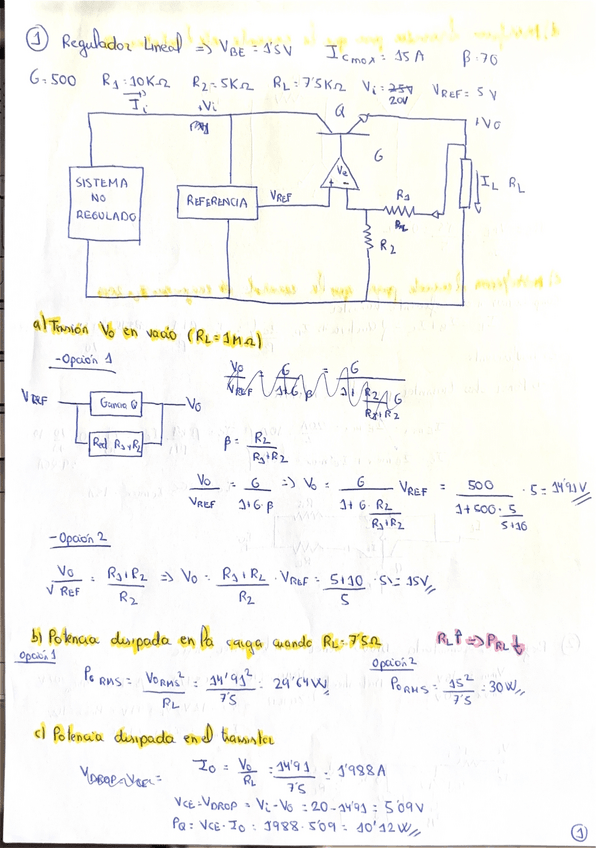 ① Regulador Lineal => VBE = 1'5V ICmax = 15A β = 70
G = 500 R1 = 10KΩ R2 = 5KΩ RL = 7'5KΩ Vi = 25V 20V VREF = 5V
Ii
+Vi
Q
+VO
G
Ve
+ -
SISTEMA
NO
REGULADO
REFERENCIA
VREF
R1
IL RL
R2
a) Tensión Vo en vacío (RL = 1MΩ)
- Opción 1
Vo/VREF = G/(1+G·β) = G/(1+ R2/(R1+R2) G)
VREF Ganancia G VO
Red R1 y R2
β = R2/(R1+R2)
Vo/VREF = G/(1+G·β) => Vo = G/(1+G·R2/(R1+R2)) VREF = 500/(1+500·5/(5+10)) · 5 = 14'91V
- Opción 2
Vo/VREF = (R1+R2)/R2 => Vo = (R1+R2)/R2 · VREF = (5+10)/5 · 5 = 15V
b) Potencia disipada en la carga cuando RL = 7'5Ω RL↑ => PRL↓
Opción 1
Po RMS = Vo RMS²/RL = 14'91²/7'5 = 29'64W
Opción 2
Po RMS = 15²/7'5 = 30W
c) Potencia disipada en el transistor
VDROP = VCE =
Io = Vo/RL = 14'91/7'5 = 1'988A
VCE = VDROP = Vi - Vo = 20 - 14'91 = 5'09V
PQ = VCE · Io = 1988 · 5'09 = 10'12W
①